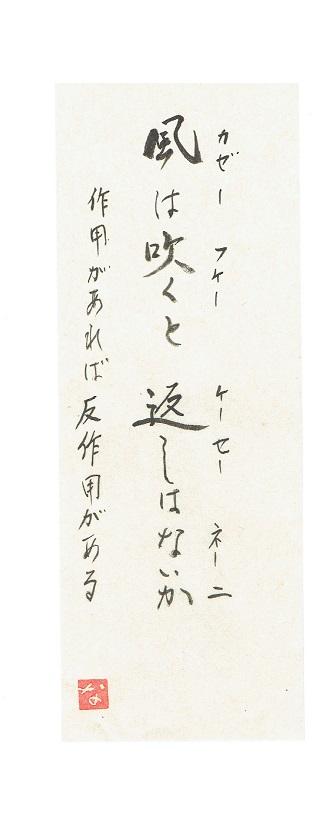 カゼー フケー ケーセー ネーニ
風は吹くと返しはないか
作用があれば反作用がある
な